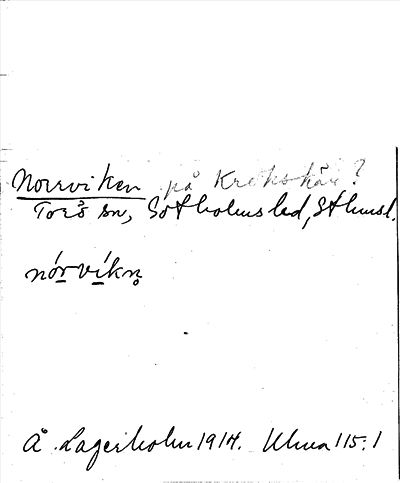 Norrviken på Krokskär?
Torö sn, Sotholms hd, Sthmsl.
nórvíkn̥
Å. Lagerholm 1914. Uhua 115:1